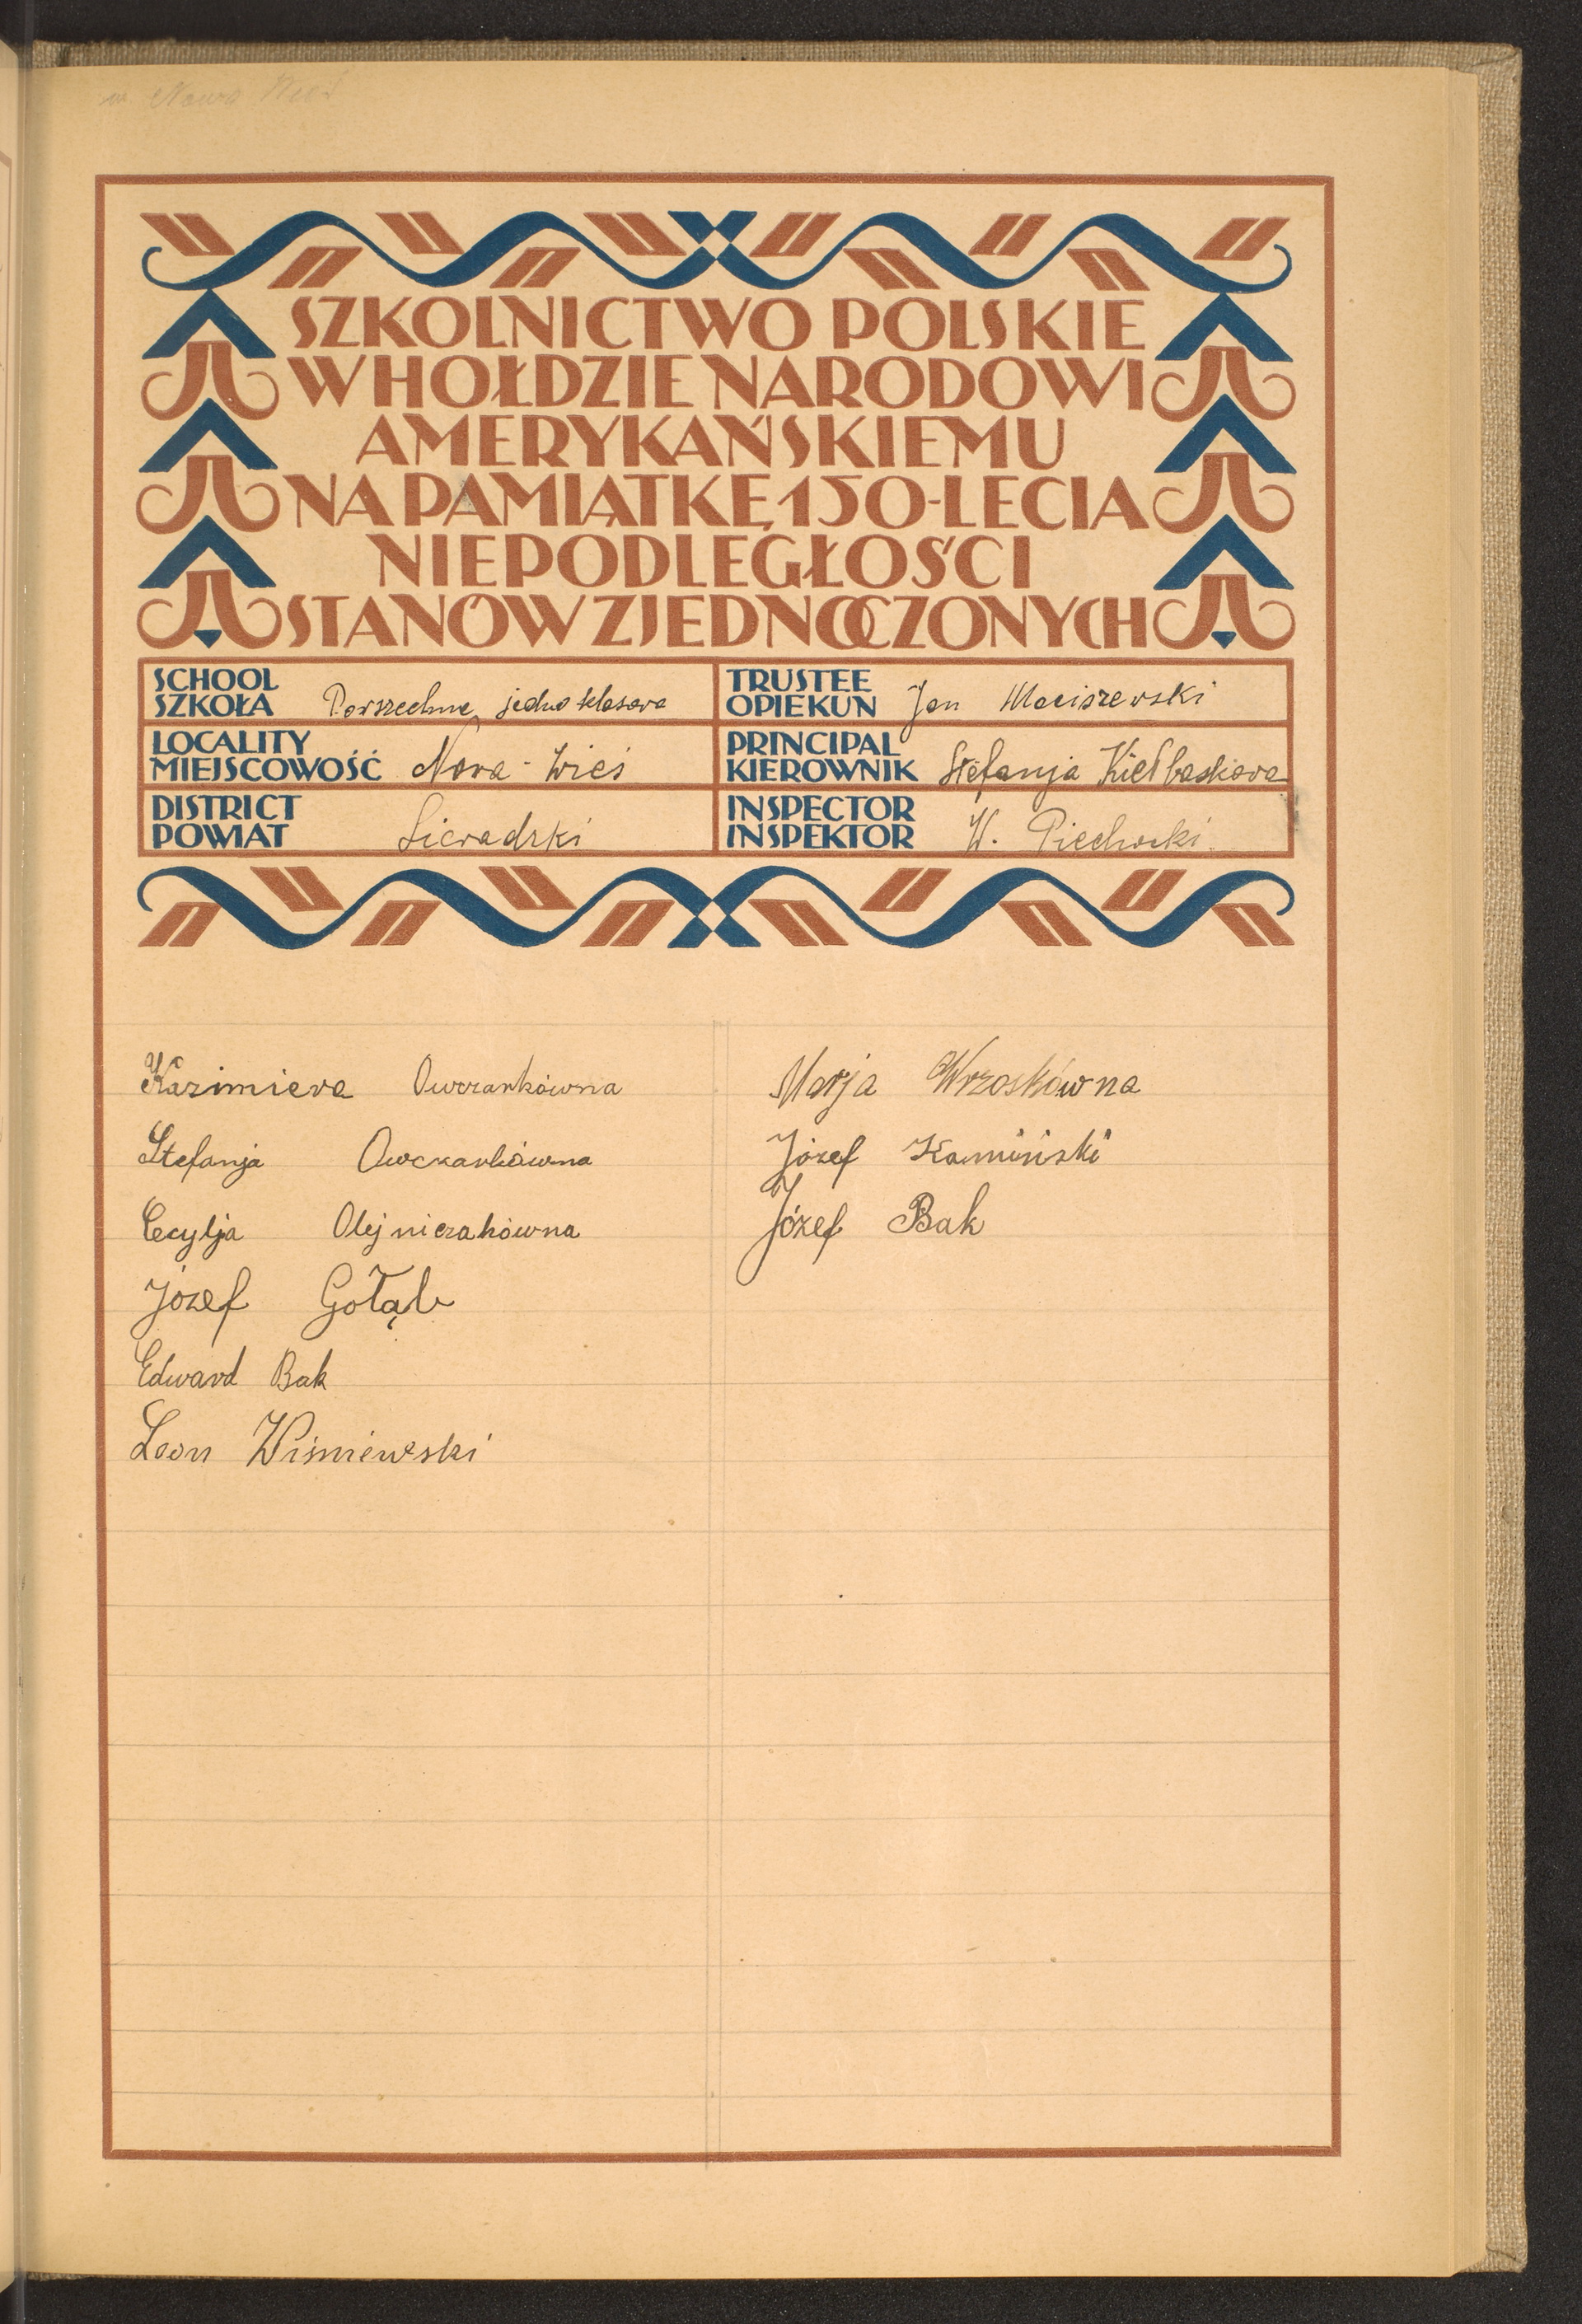 w Nowa Wieś
SZKOLNICTWO POLSKIE
W HOŁDZIE NARODOWI
AMERYKAŃSKIEMU
NA PAMIĄTKĘ 150-LECIA
NIEPODLEGŁOŚCI
STANÓW ZJEDNOCZONYCH
SCHOOL
SZKOŁA Powszechna jednoklasowa
TRUSTEE
OPIEKUN Jan Maciszewski
LOCALITY
MIEJSCOWOŚĆ Nowa-Wieś
PRINCIPAL
KIEROWNIK Stefanja Kiełbaskowa
DISTRICT
POWIAT Sieradzki
INSPECTOR
INSPEKTOR W. Piechocki.
Kazimiera Owczarkówna
Stefanja Owczarkówna
Cecylja Olejniczakówna
Józef Gołąb
Edward Bak
Leon Wiśniewski
Marja Wrzoskówna
Józef Kamiński
Józef Bak